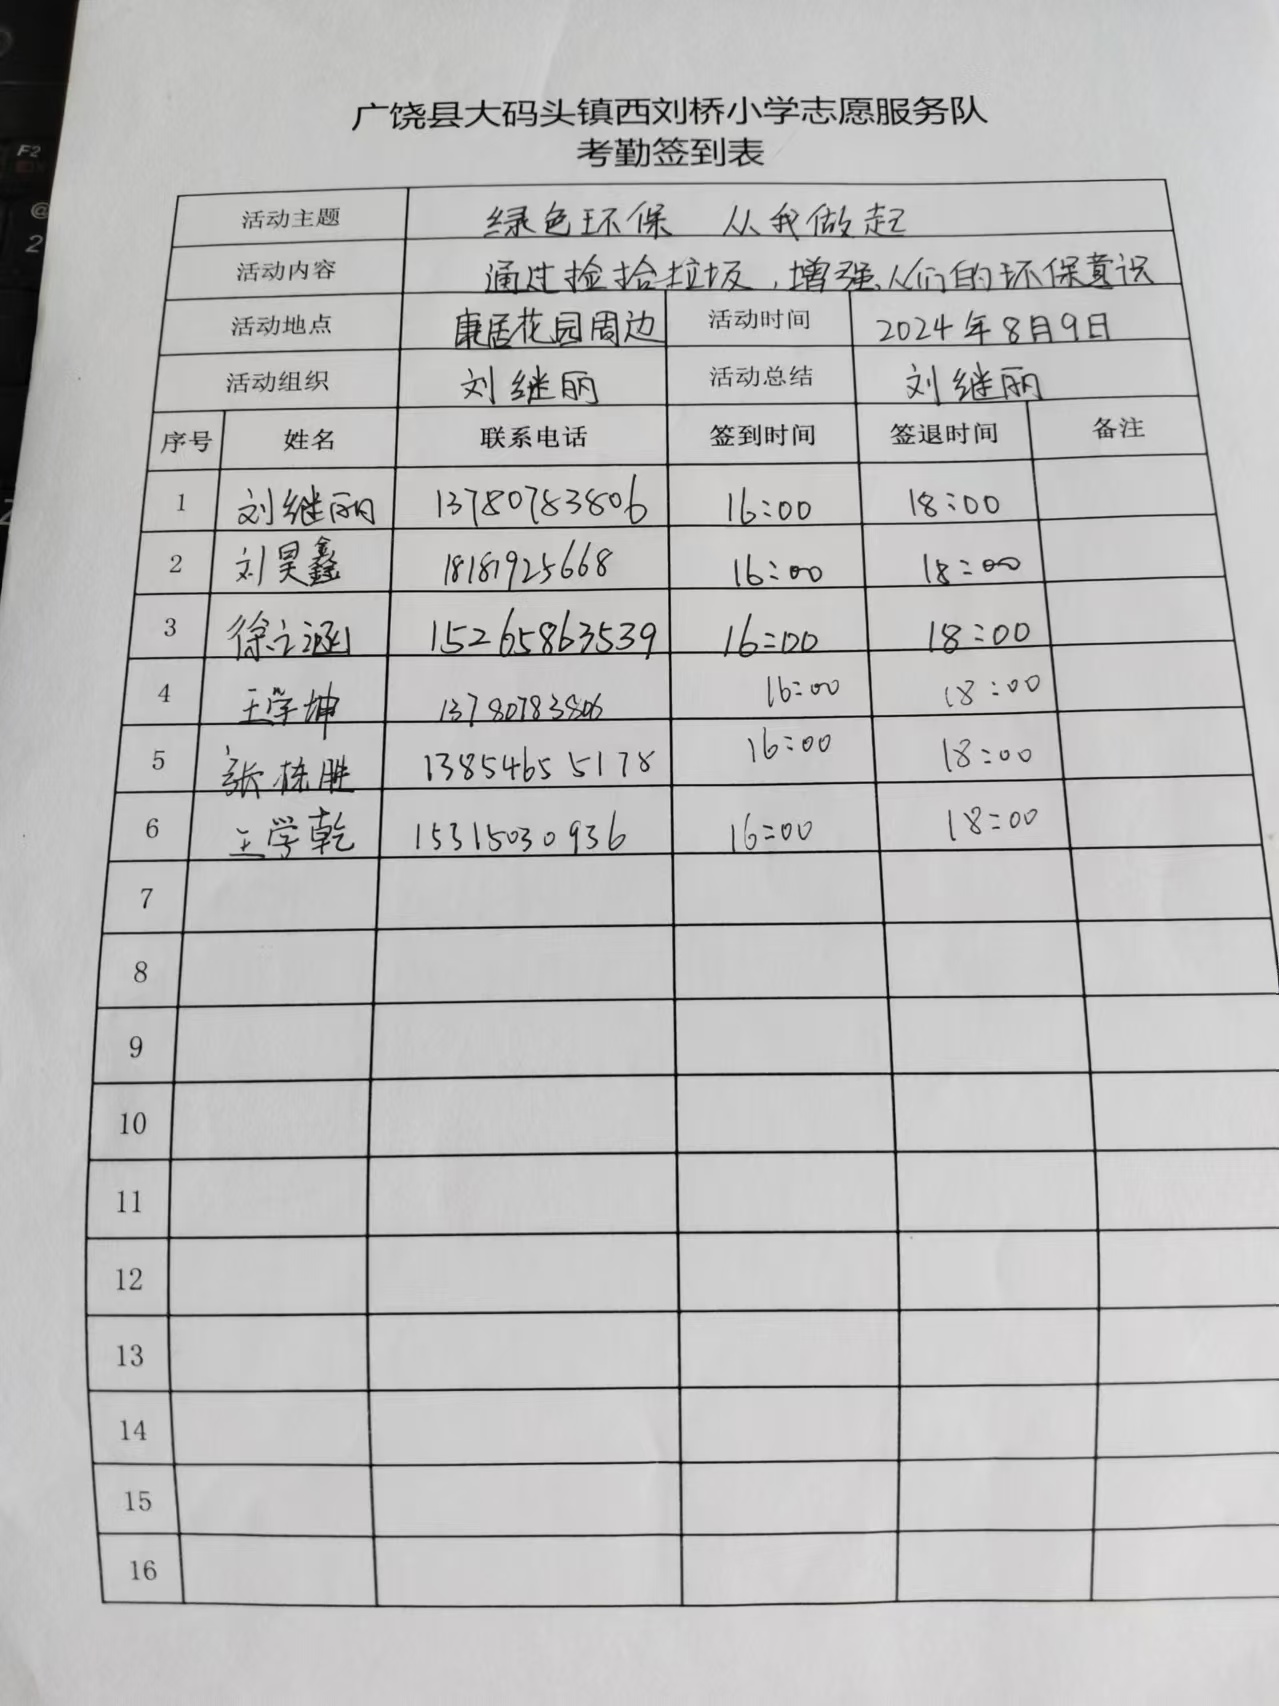 F2
@
2
广饶县大码头镇西刘桥小学志愿服务队
考勤签到表
活动主题 绿色环保 从我做起
活动内容 通过捡拾垃圾，增强人们的环保意识
活动地点 康居花园周边 活动时间 2024年8月9日
活动组织 刘继丽 活动总结 刘继丽
序号 姓名 联系电话 签到时间 签退时间 备注
1 刘继丽 13780783806 16:00 18:00
2 刘昊鑫 18181925668 16:00 18:00
3 徐立涵 15265863539 16:00 18:00
4 王学坤 13780783806 16:00 18:00
5 张栋胜 13854655178 16:00 18:00
6 王学乾 15315030936 16:00 18:00
7
8
9
10
11
12
13
14
15
16